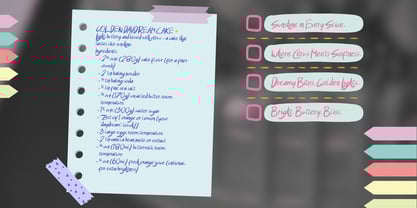 GOLDEN DAYDREAM CAKE -
light, buttery and kissed with citrus - a cake that
tastes like sunlight.
Ingredients
- 2 ¼ cups (280g) cake flour (for a pure
- 2 tsp baking powder
- ½ tsp baking soda
- ½ tsp fine sea salt
- ¾ cup (170g) unsalted butter, room
temperature
- 1 ½ cups (300g) caster sugar
- Zest of 1 orange or lemon (your
daydream mood!)
- 3 large eggs, room temperature
- 2 tsp vanilla bean paste or extract
- ¾ cup (180ml) buttermilk, room
temperature
- ¼ cup (60ml) fresh orange juice (optional
for extra brightness)
Sunshine in Every Slice.
Where Citrus Meets Softness.
Dreamy Bites, Golden light.
Bright. Buttery. Bliss.